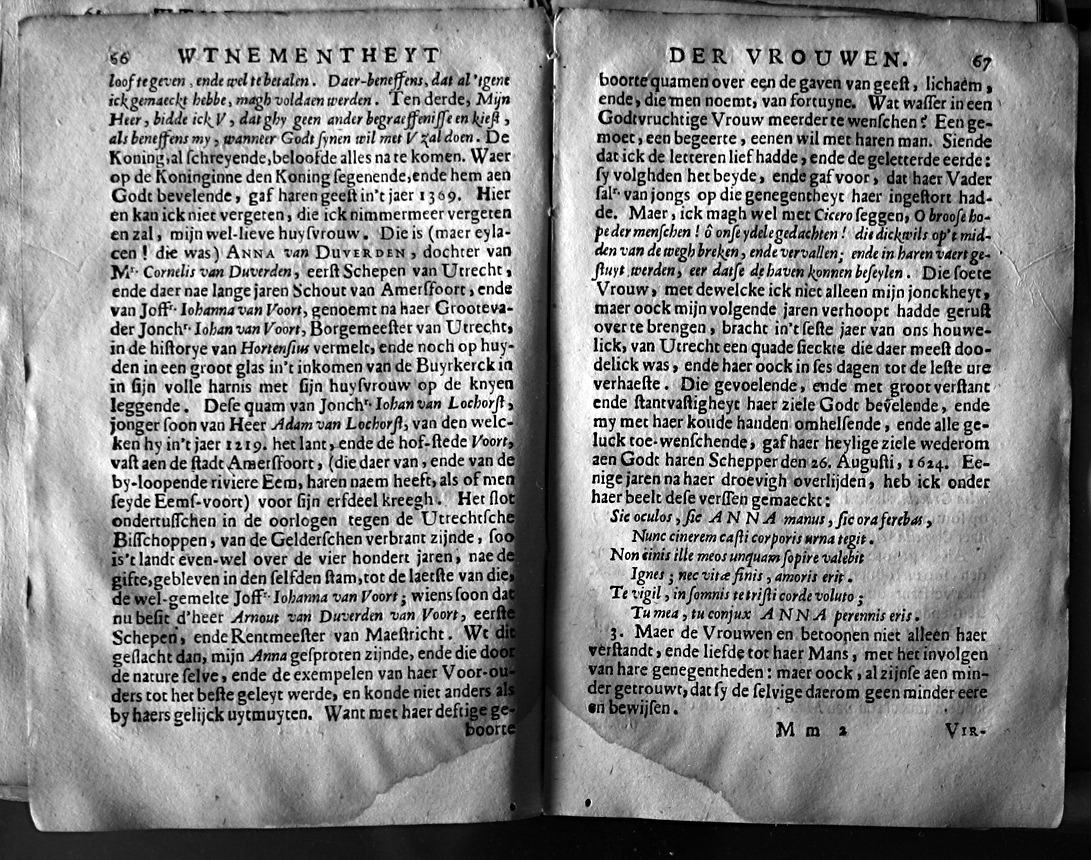 66 WTNEMENTHEYT
loof te geven, ende wel te betalen. Daer-beneffens, dat al 'tgene
ick gemaeckt hebbe, magh voldaen werden. Ten derde, Mijn
Heer, bidde ick V, dat ghy geen ander begraeffenisse en kiest,
als beneffens my, wanneer Godt synen wil met V zal doen. De
Koning, al schreyende, beloofde alles na te komen. Waer
op de Koninginne den Koning segenende, ende hem aen
Godt bevelende, gaf haren geest in't jaer 1369. Hier
en kan ick niet vergeten, die ick nimmermeer vergeten
en zal, mijn wel-lieve huysvrouw. Die is (maer eyla-
cen! die was) ANNA van DUVERDEN, dochter van
Mr. Cornelis van Duverden, eerst Schepen van Utrecht,
ende daer nae lange jaren Schout van Amersfoort, ende
van Joffr. Iohanna van Voort, genoemt na haer Grooteva-
der Jonchr. Iohan van Voort, Borgemeester van Utrecht,
in de historye van Hortensius vermelt, ende noch op huy-
den in een groot glas in't inkomen van de Buyrkerck in
in sijn volle harnis met sijn huysvrouw op de knyen
leggende. Dese quam van Jonchr. Iohan van Lochorst,
jonger soon van Heer Adam van Lochorst, van den welc-
ken hy in't jaer 1219. het lant, ende de hof-stede Voort,
vast aen de stadt Amersfoort, (die daer van, ende van de
by-loopende riviere Eem, haren naem heeft, als of men
seyde Eems-voort) voor sijn erfdeel kreegh. Het slot
ondertusschen in de oorlogen tegen de Utrechtsche
Bisschoppen, van de Gelderschen verbrant zijnde, soo
is't landt even-wel over de vier hondert jaren, nae de
gifte, gebleven in den selfden stam, tot de laetste van die,
de wel-gemelte Joffr. Iohanna van Voort; wiens soon dat
nu besit d'heer Arnout van Duverden van Voort, eerste
Schepen, ende Rentmeester van Maestricht. Wt dit
geslacht dan, mijn Anna gesproten zijnde, ende die door
de nature selve, ende de exempelen van haer Voor-ou-
ders tot het beste geleyt werde, en konde niet anders als
by haers gelijck uytmuyten. Want met haer deftige ge-
boorte
DER VROUWEN. 67
boorte quamen over een de gaven van geest, lichaem,
ende, die men noemt, van fortuyne. Wat wasser in een
Godtvruchtige Vrouw meerder te wenschen? Een ge-
moet, een begeerte, eenen wil met haren man. Siende
dat ick de letteren lief hadde, ende de geletterde eerde:
sy volghden het beyde, ende gaf voor, dat haer Vader
salr. van jongs op die genegentheyt haer ingestort had-
de. Maer, ick magh wel met Cicero seggen, O broose ho-
pe der menschen! ô onse ydele gedachten! die dickwils op't mid-
den van de wegh breken, ende vervallen; ende in haren vaert ge-
stuyt werden, eer datse de haven konnen beseylen. Die soete
Vrouw, met dewelcke ick niet alleen mijn jonckheyt,
maer oock mijn volgende jaren verhoopt hadde gerust
over te brengen, bracht in't seste jaer van ons houwe-
lick, van Utrecht een quade sieckte die daer meest doo-
delick was, ende haer oock in ses dagen tot de leste ure
verhaeste. Die gevoelende, ende met groot verstant
ende stantvastigheyt haer ziele Godt bevelende, ende
my met haer koude handen omhelsende, ende alle ge-
luck toe-wenschende, gaf haer heylige ziele wederom
aen Godt haren Schepper den 26. Augusti, 1624. Ee-
nige jaren na haer droevigh overlijden, heb ick onder
haer beelt dese verssen gemaeckt:
Sic oculos, sic ANNA manus, sic ora ferebas,
Nunc cinerem casti corporis urna tegit.
Non cinis ille meos unquam sopire valebit
Ignes; nec vitæ finis, amoris erit.
Te vigil, in somnis te tristi corde voluto;
Tu mea, tu conjux ANNA perennis eris.
3. Maer de Vrouwen en betoonen niet alleen haer
verstandt, ende liefde tot haer Mans, met het involgen
van hare genegentheden: maer oock, al zijnse aen min-
der getrouwt, dat sy de selvige daerom geen minder eere
en bewijsen.
Mm 2 VIR-